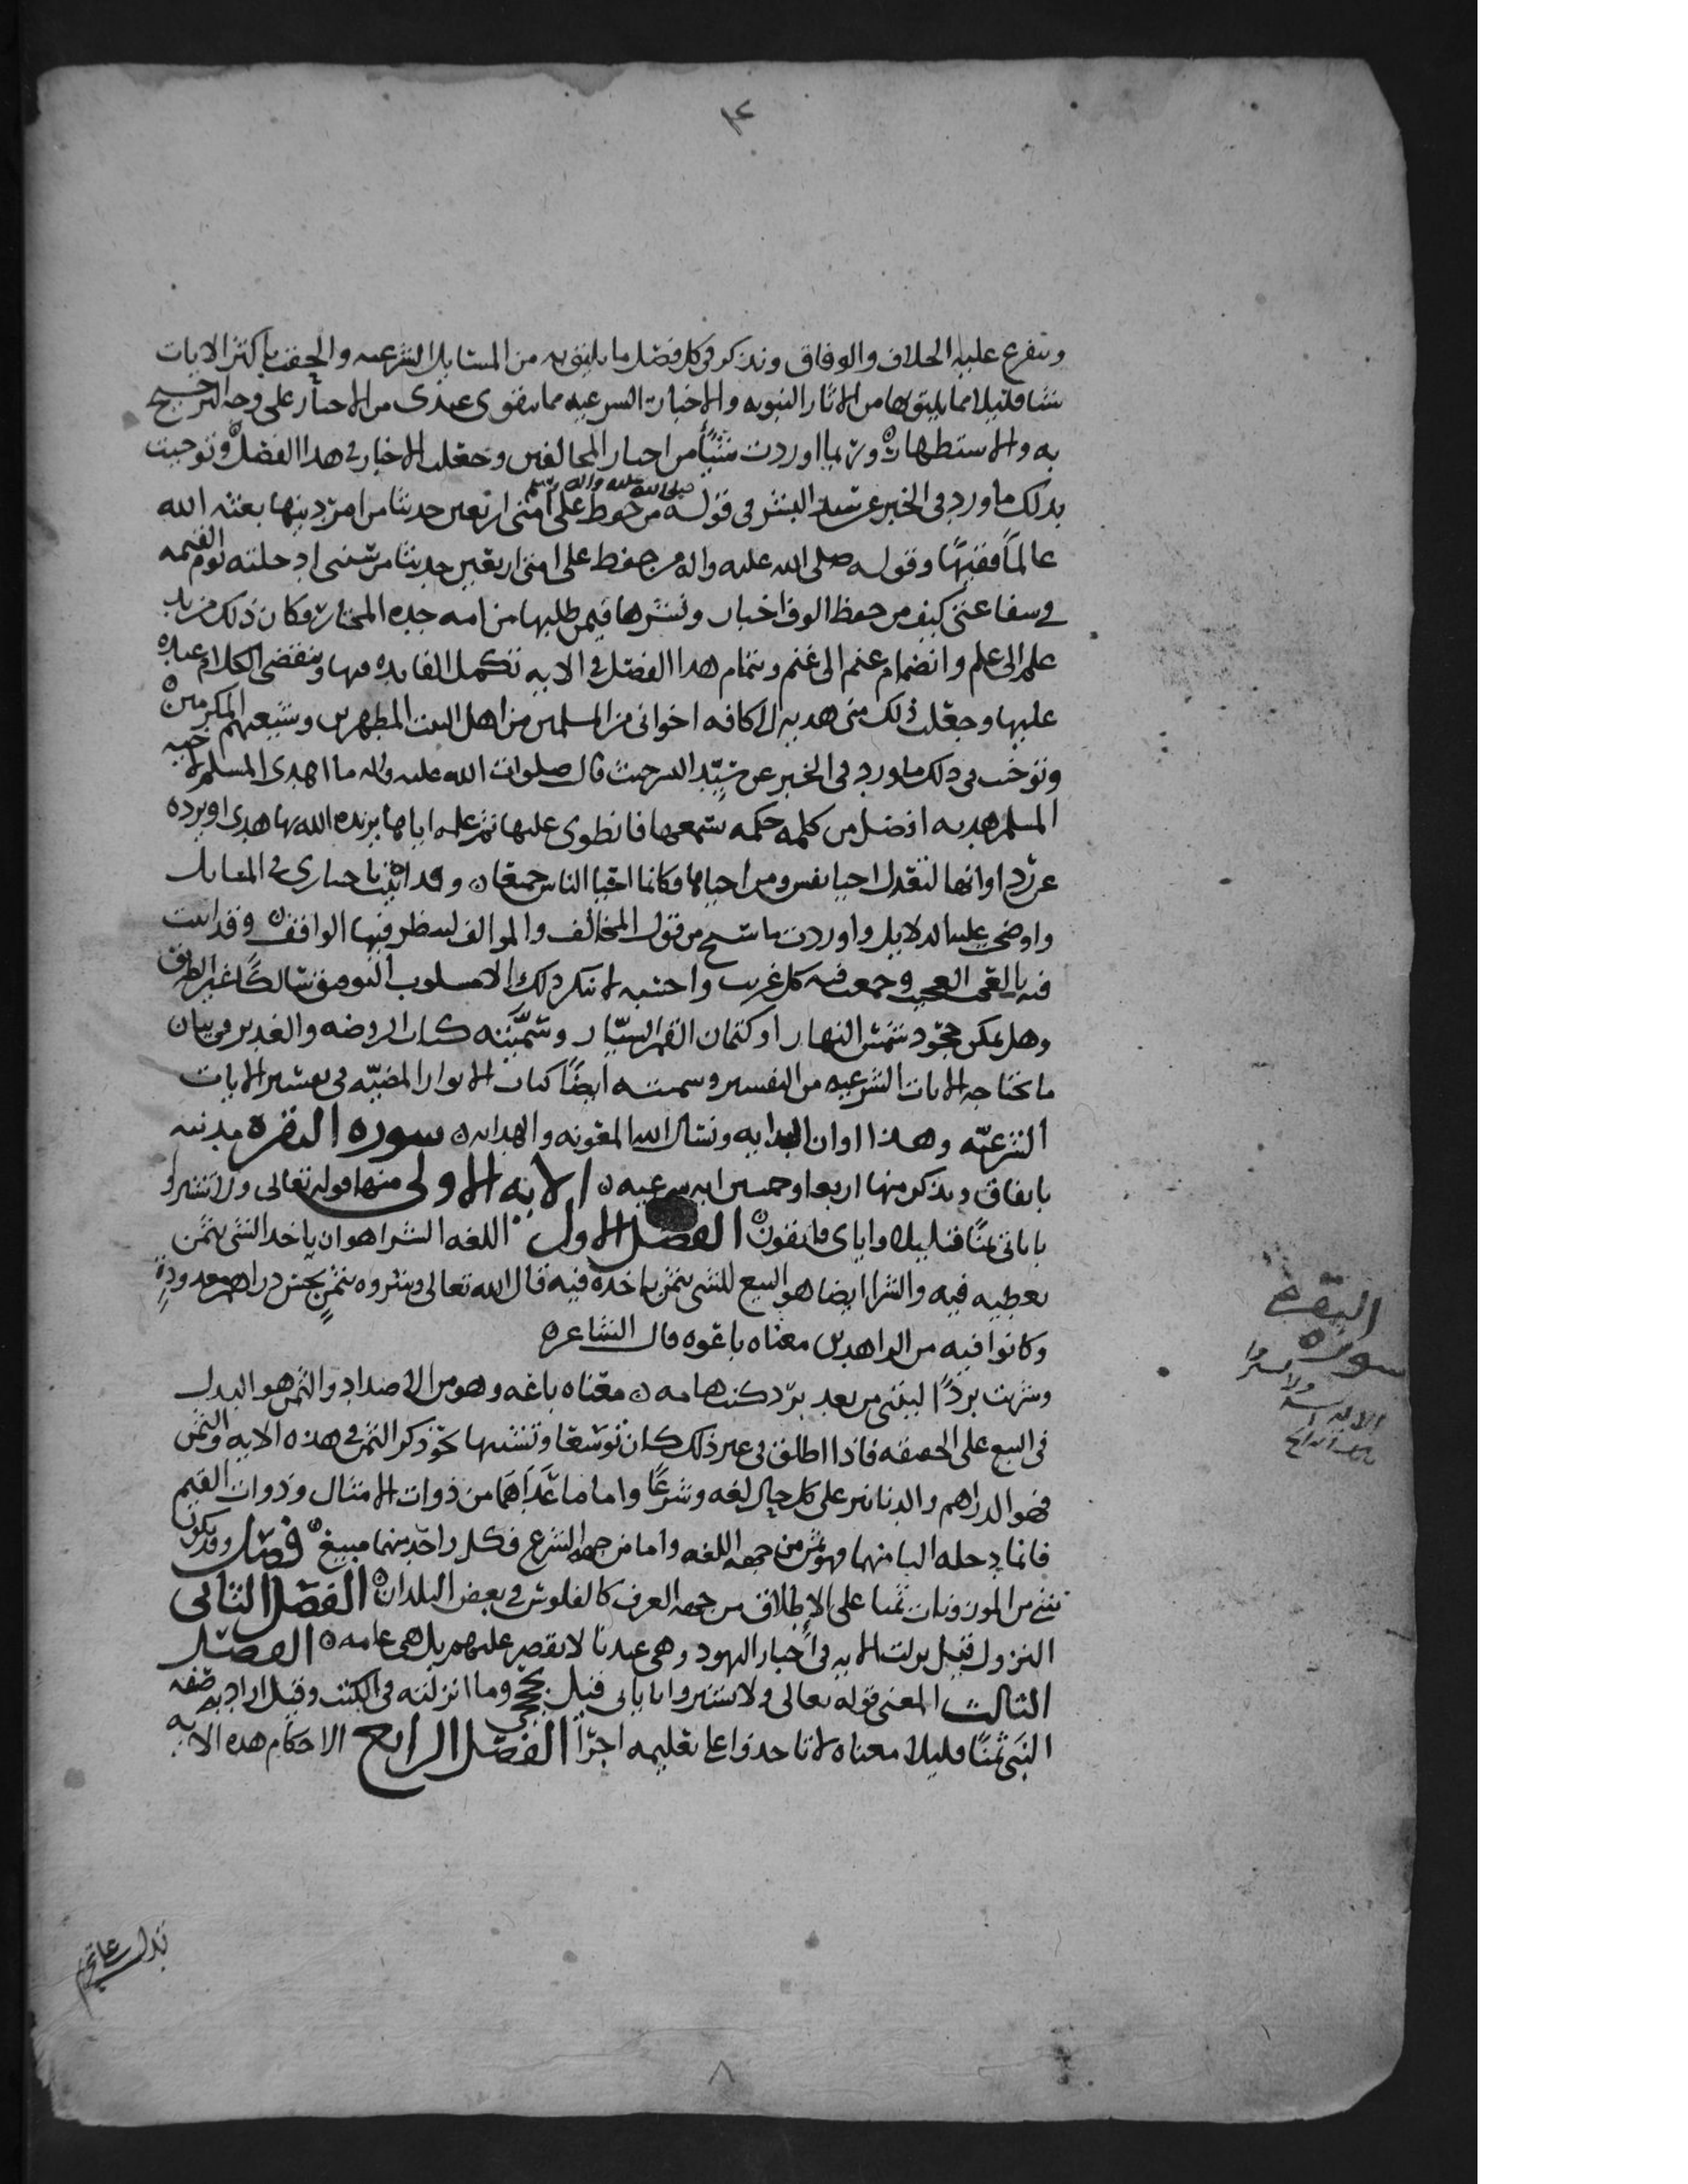 ويتفرع عليه الخلاف والوفاق ونذكر في كل فصل ما يليق به من المسايل الشرعيه والحقت باكثر الايات
شيا قليلا مما يليق بها من الاثار النبويه والاخبار الشرعيه مما يقوى عندي من الاخبار على وجه الترجيح
به والاستظهار وربما اوردت شيئا من اخبار المخالفين وجعلت الاخبار في هذا الفصل وتوخيت
بذلك ما ورد في الخبر عن سيد البشر في قوله صلى الله عليه واله وسلم من حفظ على امتي اربعين حديثا من امر دينها بعثه الله
عالما فقيها وقوله صلى الله عليه واله من حفظ على امتي اربعين حديثا من سنتي ادخلته يوم القيمه
في شفاعتي كيف من حفظ الوف اخبار ونشرها فيمن طلبها من امه جده المختار وكان ذلك مزيد
علم الى علم وانضمام غنم الى غنم وبتمام هذا الفصل في الايه تكمل الفايده فيها وينقضي الكلام عنده
عليها وجعلت ذلك مني هديه الى كافه اخواني من المسلمين من اهل البيت المطهرين وشيعتهم المكرمين
وتوخيت في ذلك ما ورد في الخبر عن سيد البشر حيث قال صلوات الله عليه واله ما اهدى المسلم لاخيه
المسلم هديه افضل من كلمه حكمه سمعها فانطوى عليها ثم علمه اياها يزيده الله بها هدى او يرده
عن ردا وانها لتعدل احيا نفس ومن احياها فكانما احيا الناس جميعا وقد اثبت باختياري في المسايل
واوضحت عليه الدلايل واوردت ما سنح من قول المخالف والموالف لينظر فيها الواقف وقد اتيت
فيه بالعجب العجيب وجمعت فيه كل غريب واحسبه لا ينكر ذلك الا مسلوب التوفيق سالكا غير الطريق
وهل يمكن جحود شمس النهار او كتمان القمر السيار وسميته كتاب الروضه والغدير في بيان
ما تحتاجه الايات الشرعيه من التفسير وسميته ايضا كتاب الانوار المضيه في تفسير الايات
الشرعيه وهذا اوان البدايه ونسال الله المعونه والهدايه سوره البقره مدنيه
باتفاق ونذكر منها اربعا وخمسين ايه شرعيه الايه الاولى منها قوله تعالى ولا تشتروا
باياتي ثمنا قليلا واياي فاتقون الفصل الاول اللغه الشرا هو ان ياخذ الشي بثمن
يعطيه فيه والشرا ايضا هو البيع للشي بثمن ياخذه فيه قال الله تعالى وشروه بثمن بخس دراهم معدودة
وكانوا فيه من الزاهدين معناه باعوه قال الشاعر
وشريت بردا ليتني من بعد برد كنت هامه معناه باعه وهو من الاضداد والثمن هو البدل
في البيع على الحقيقه فاذا اطلق في غير ذلك كان توسعا وتشبيها نحو ذكر الثمن في هذه الايه والثمن
فهو الدراهم والدنانير على كل حال لغه وشرعا واما ما عداهما من ذوات الامثال وذوات القيم
فانما دخله البا منهما فهو ثمن من جهه اللغه واما من جهه الشرع فكل واحد منهما مبيع فصل وقد يكون
شي من الموزونات ثمنا على الاطلاق من جهه العرف كالفلوس في بعض البلدان الفصل الثاني
النزول قيل نزلت الايه في احبار اليهود وهي عندنا لا تقصر عليهم بل هي عامه الفصل
الثالث المعنى قوله تعالى ولا تشتروا باياتي قيل بحججي وما انزلته في الكتب وقيل اراد به صفه
النبي ثمنا قليلا معناه لا تاخذوا على تعليمه اجرا الفصل الرابع الاحكام هذه الايه
البقره
سوره
ولا تشتروا
تدل على تحريم
٨